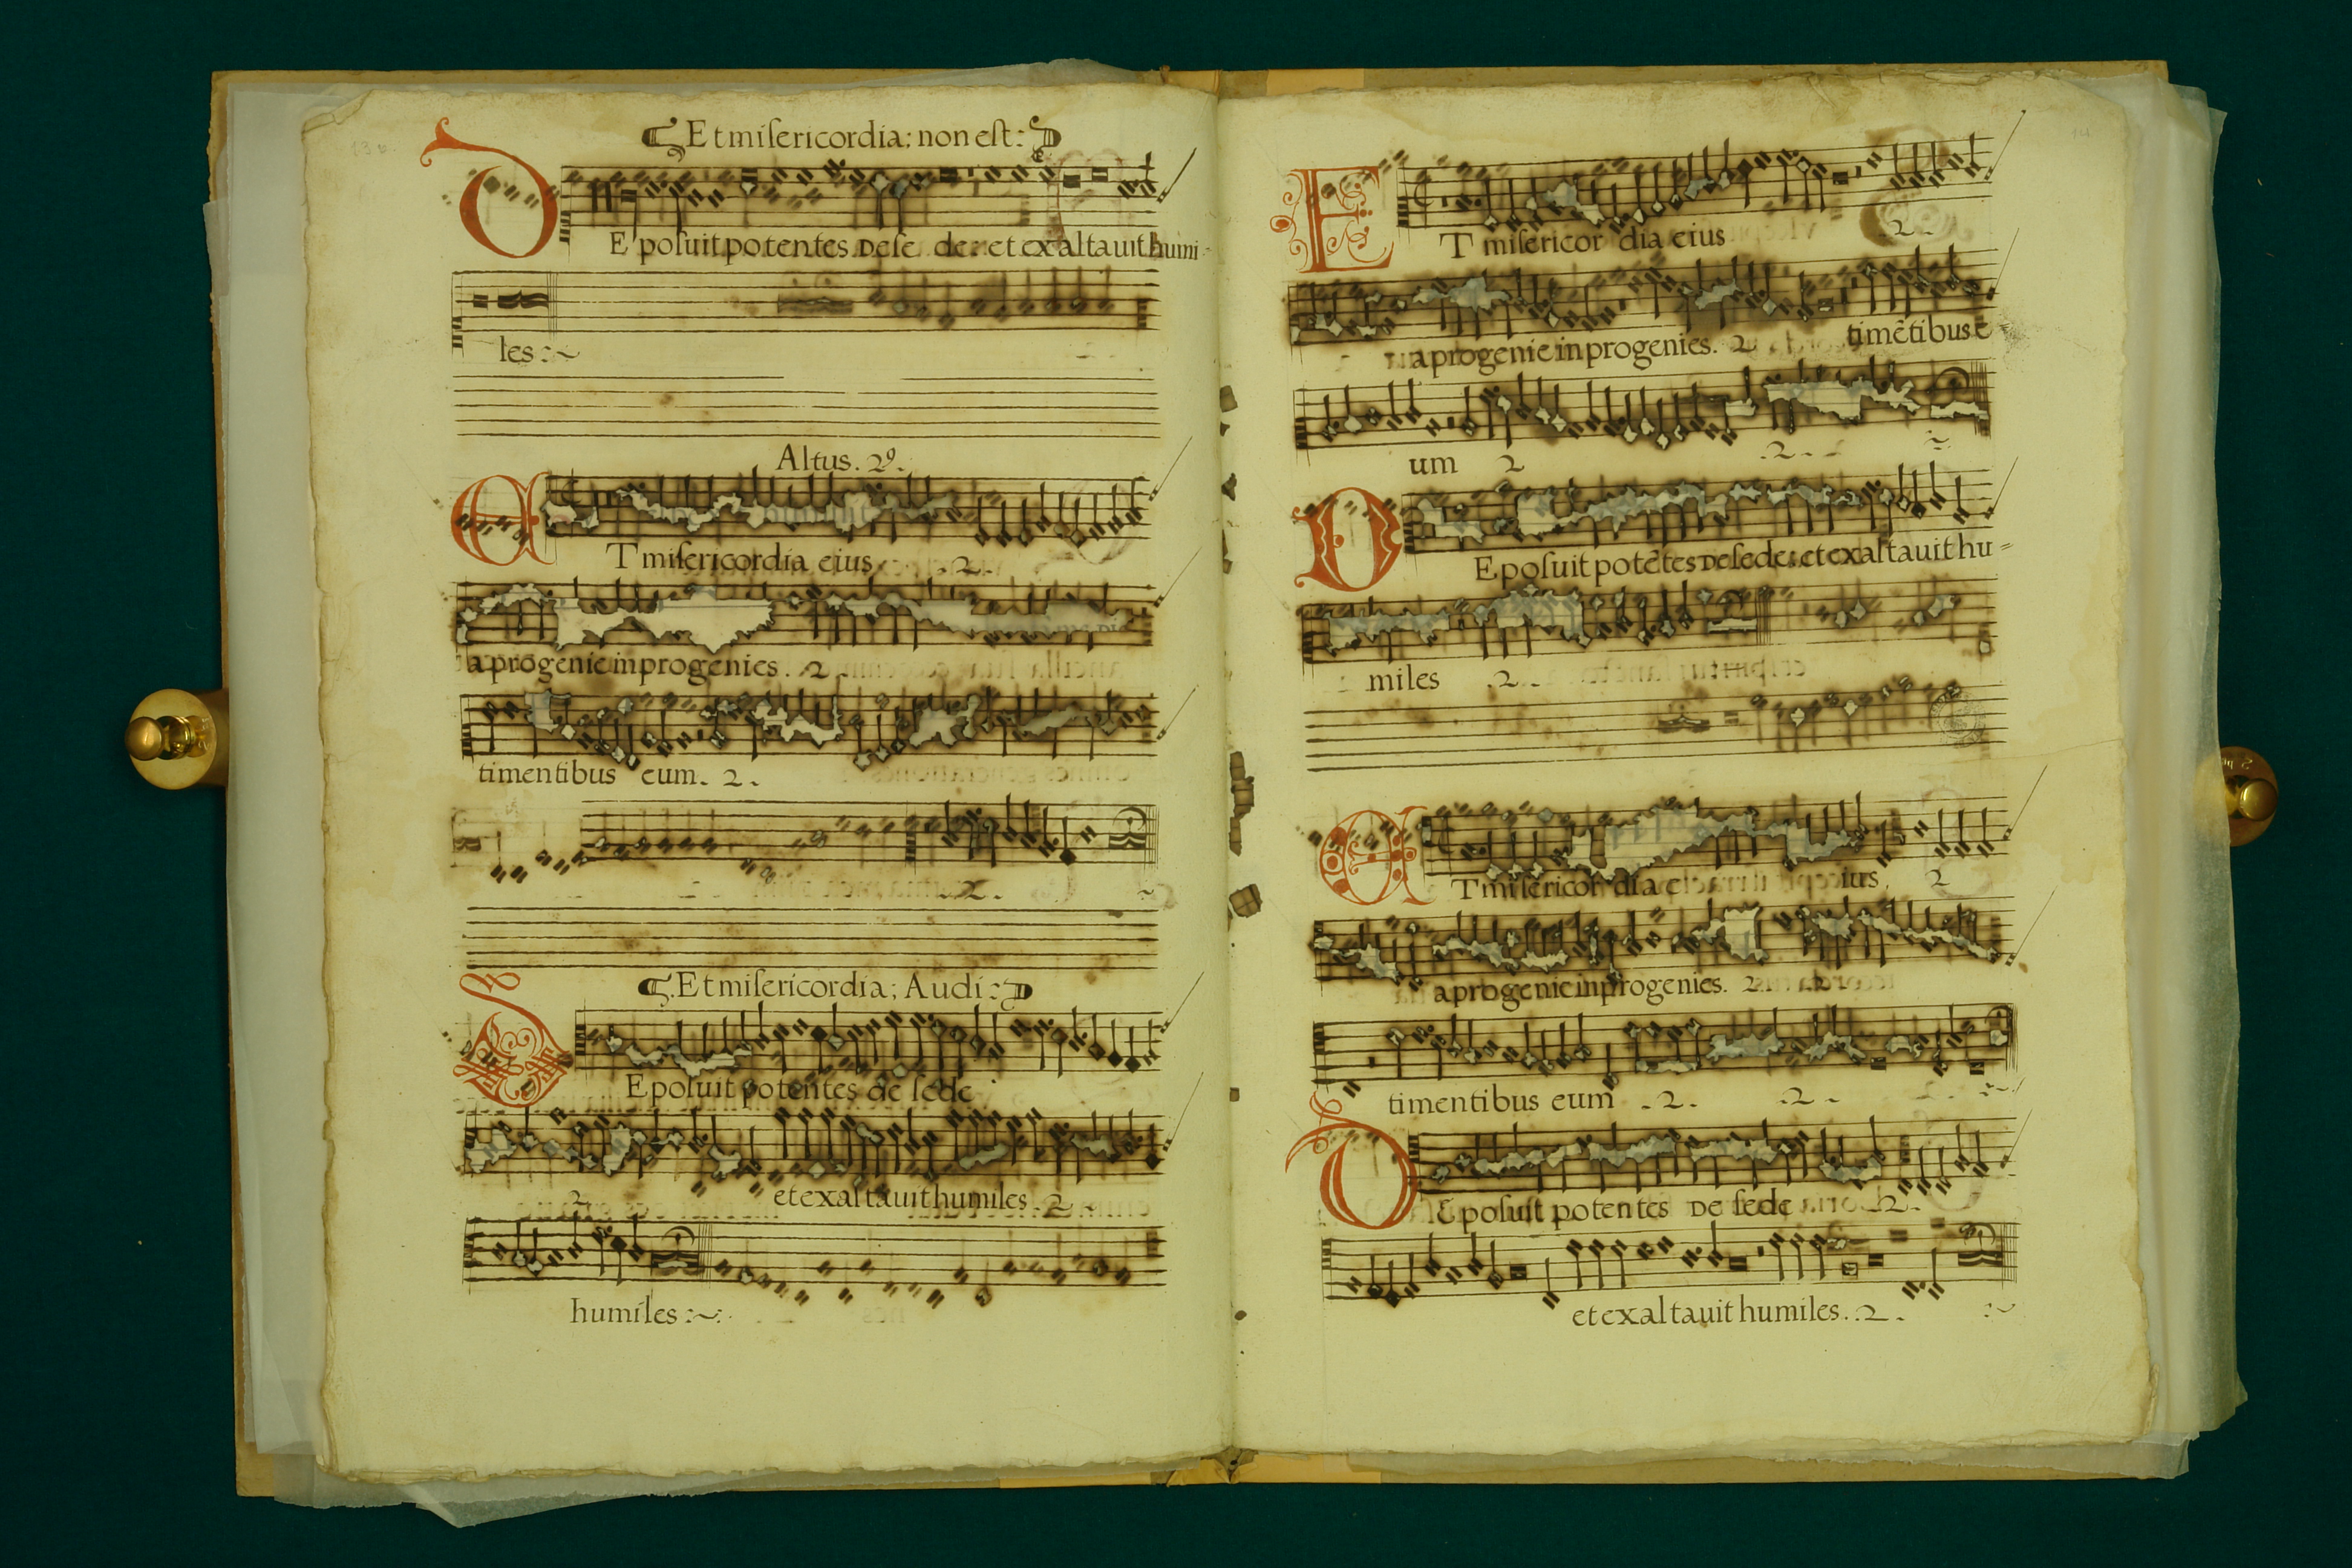 13v.
Et miſericordia: non est:
DE poſuit potentes De ſe de: et exaltauit humi-
les:~
Altus. 2º.
ET miſericordia eius .2.
a progenie in progenies. .2.
timentibus eum. 2.
.2. ~
Et miſericordia; Audi:
DE poſuit potentes de ſede
2 et exaltauit humiles .2.
humiles :~:
14
ET miſericor dia eius .2.
a progenie in progenies. 2 timētibus e
um 2 .2. ~
DE poſuit potētes De ſede: et exaltauit hu=
miles .2.
ET miſericor dia e ius 2
a progenie in progenies. 2
timentibus eum .2. .2. :~
DE poſuit potentes De ſede .2.
et exaltauit humiles. .2. :~